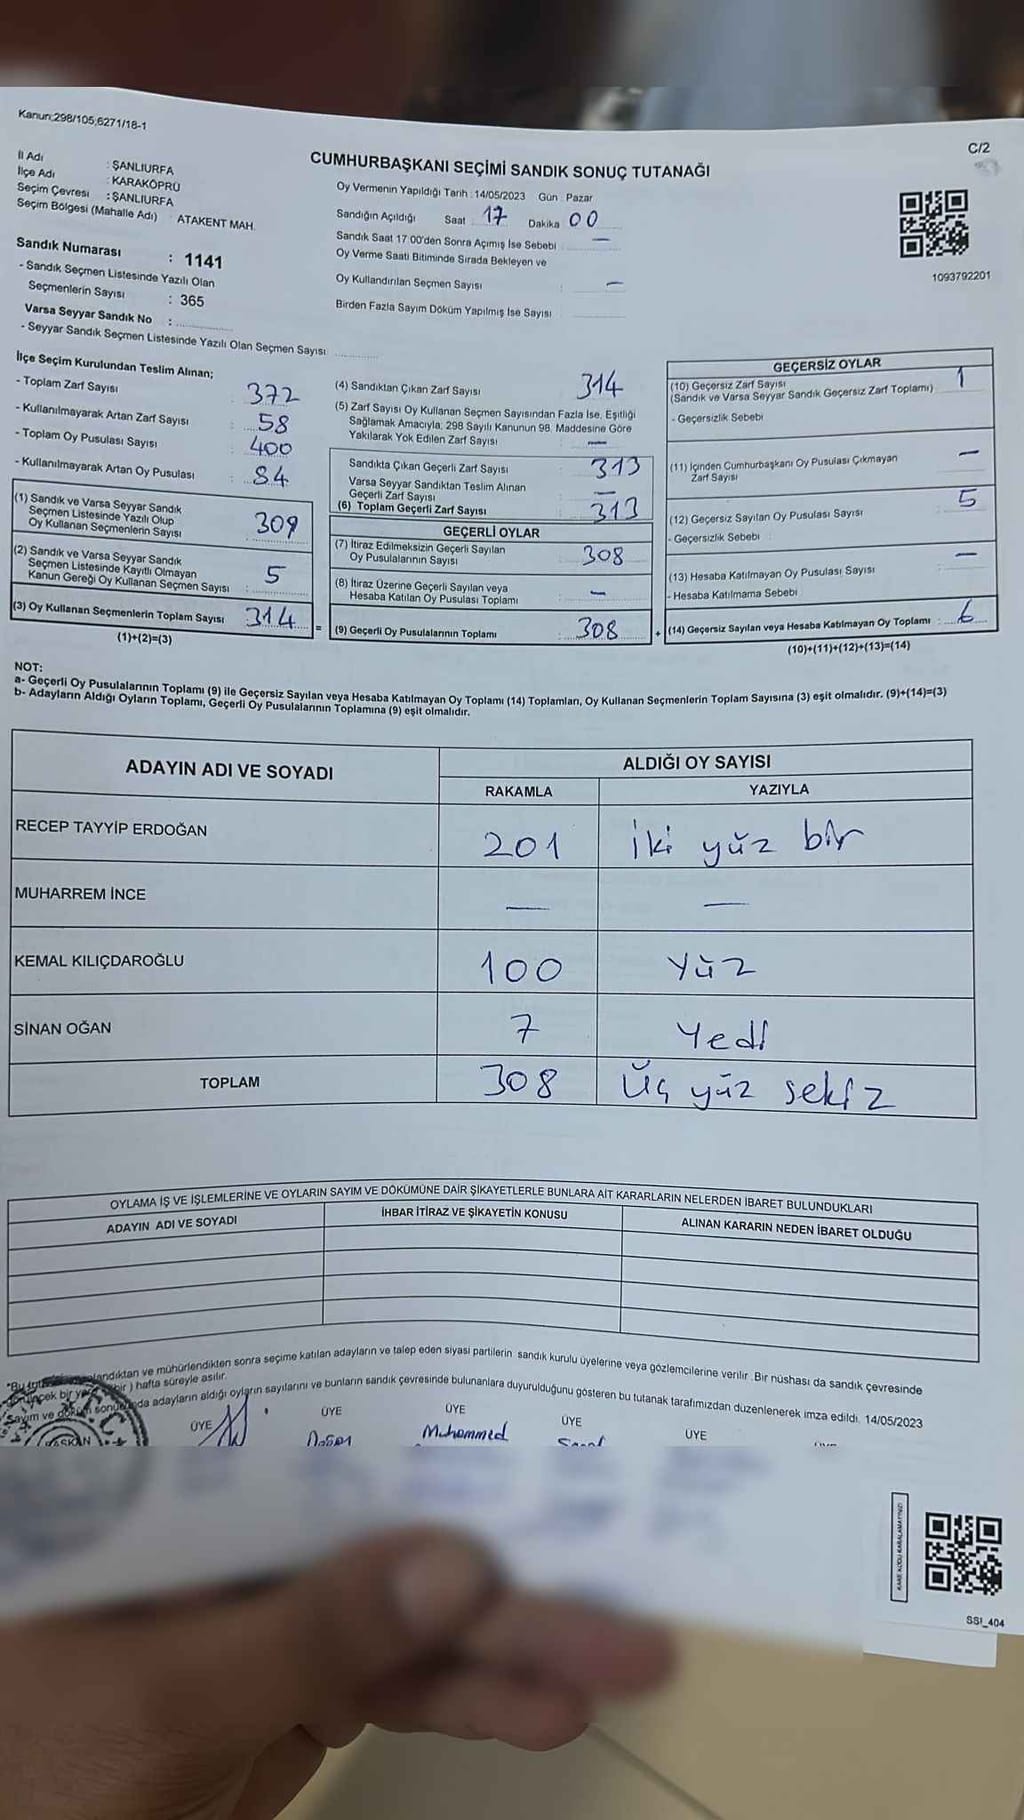 Kanun;298/105,6271/18-1
C/2
İl Adı : ŞANLIURFA
İlçe Adı : KARAKÖPRÜ
Seçim Çevresi : ŞANLIURFA
Seçim Bölgesi (Mahalle Adı) : ATAKENT MAH.
Sandık Numarası : 1141
- Sandık Seçmen Listesinde Yazılı Olan
Seçmenlerin Sayısı : 365
Varsa Seyyar Sandık No :
- Seyyar Sandık Seçmen Listesinde Yazılı Olan Seçmen Sayısı
CUMHURBAŞKANI SEÇİMİ SANDIK SONUÇ TUTANAĞI
Oy Vermenin Yapıldığı Tarih : 14/05/2023 Gün : Pazar
Sandığın Açıldığı Saat : 17 Dakika 00
Sandık Saat 17:00'den Sonra Açımış İse Sebebi —
Oy Verme Saati Bitiminde Sırada Bekleyen ve
Oy Kullandırılan Seçmen Sayısı : —
Birden Fazla Sayım Döküm Yapılmış İse Sayısı
1093792201
İlçe Seçim Kurulundan Teslim Alınan;
- Toplam Zarf Sayısı : 372
- Kullanılmayarak Artan Zarf Sayısı : 58
- Toplam Oy Pusulası Sayısı : 400
- Kullanılmayarak Artan Oy Pusulası : 84
(1) Sandık ve Varsa Seyyar Sandık
Seçmen Listesinde Yazılı Olup
Oy Kullanan Seçmenlerin Sayısı : 309
(2) Sandık ve Varsa Seyyar Sandık
Seçmen Listesinde Kayıtlı Olmayan
Kanun Gereği Oy Kullanan Seçmen Sayısı : 5
(3) Oy Kullanan Seçmenlerin Toplam Sayısı : 314
(1)+(2)=(3)
(4) Sandıktan Çıkan Zarf Sayısı 314
(5) Zarf Sayısı Oy Kullanan Seçmen Sayısından Fazla İse, Eşitliği
Sağlamak Amacıyla; 298 Sayılı Kanunun 98. Maddesine Göre
Yakılarak Yok Edilen Zarf Sayısı : —
Sandıkta Çıkan Geçerli Zarf Sayısı 313
Varsa Seyyar Sandıktan Teslim Alınan
Geçerli Zarf Sayısı —
(6) Toplam Geçerli Zarf Sayısı 313
GEÇERLİ OYLAR
(7) İtiraz Edilmeksizin Geçerli Sayılan
Oy Pusulalarının Sayısı : 308
(8) İtiraz Üzerine Geçerli Sayılan veya
Hesaba Katılan Oy Pusulası Toplamı : —
= (9) Geçerli Oy Pusulalarının Toplamı : 308
GEÇERSİZ OYLAR
(10) Geçersiz Zarf Sayısı
(Sandık ve Varsa Seyyar Sandık Geçersiz Zarf Toplamı) : 1
- Geçersizlik Sebebi
(11) İçinden Cumhurbaşkanı Oy Pusulası Çıkmayan
Zarf Sayısı —
(12) Geçersiz Sayılan Oy Pusulası Sayısı 5
- Geçersizlik Sebebi :
(13) Hesaba Katılmayan Oy Pusulası Sayısı —
- Hesaba Katılmama Sebebi
+ (14) Geçersiz Sayılan veya Hesaba Katılmayan Oy Toplamı : 6
(10)+(11)+(12)+(13)=(14)
NOT:
a- Geçerli Oy Pusulalarının Toplamı (9) ile Geçersiz Sayılan veya Hesaba Katılmayan Oy Toplamı (14) Toplamları, Oy Kullanan Seçmenlerin Toplam Sayısına (3) eşit olmalıdır. (9)+(14)=(3)
b- Adayların Aldığı Oyların Toplamı, Geçerli Oy Pusulalarının Toplamına (9) eşit olmalıdır.
ADAYIN ADI VE SOYADI ALDIĞI OY SAYISI
RAKAMLA YAZIYLA
RECEP TAYYİP ERDOĞAN 201 İki yüz bir
MUHARREM İNCE — —
KEMAL KILIÇDAROĞLU 100 Yüz
SİNAN OĞAN 7 Yedi
TOPLAM 308 Üç yüz sekiz
OYLAMA İŞ VE İŞLEMLERİNE VE OYLARIN SAYIM VE DÖKÜMÜNE DAİR ŞİKAYETLERLE BUNLARA AİT KARARLARIN NELERDEN İBARET BULUNDUKLARI
ADAYIN ADI VE SOYADI İHBAR İTİRAZ VE ŞİKAYETİN KONUSU ALINAN KARARIN NEDEN İBARET OLDUĞU
ve mühürlendikten sonra seçime katılan adayların ve talep eden siyasi partilerin sandık kurulu üyelerine veya gözlemcilerine verilir. Bir nüshası da sandık çevresinde
bir ) hafta süreyle asılır.
Sayım ve adayların aldığı oyların sayılarını ve bunların sandık çevresinde bulunanlara duyurulduğunu gösteren bu tutanak tarafımızdan düzenlenerek imza edildi. 14/05/2023
BAŞKAN ÜYE ÜYE ÜYE ÜYE ÜYE
Muhammed
KARE KODU KARALAMAYINIZ!
SSI_404